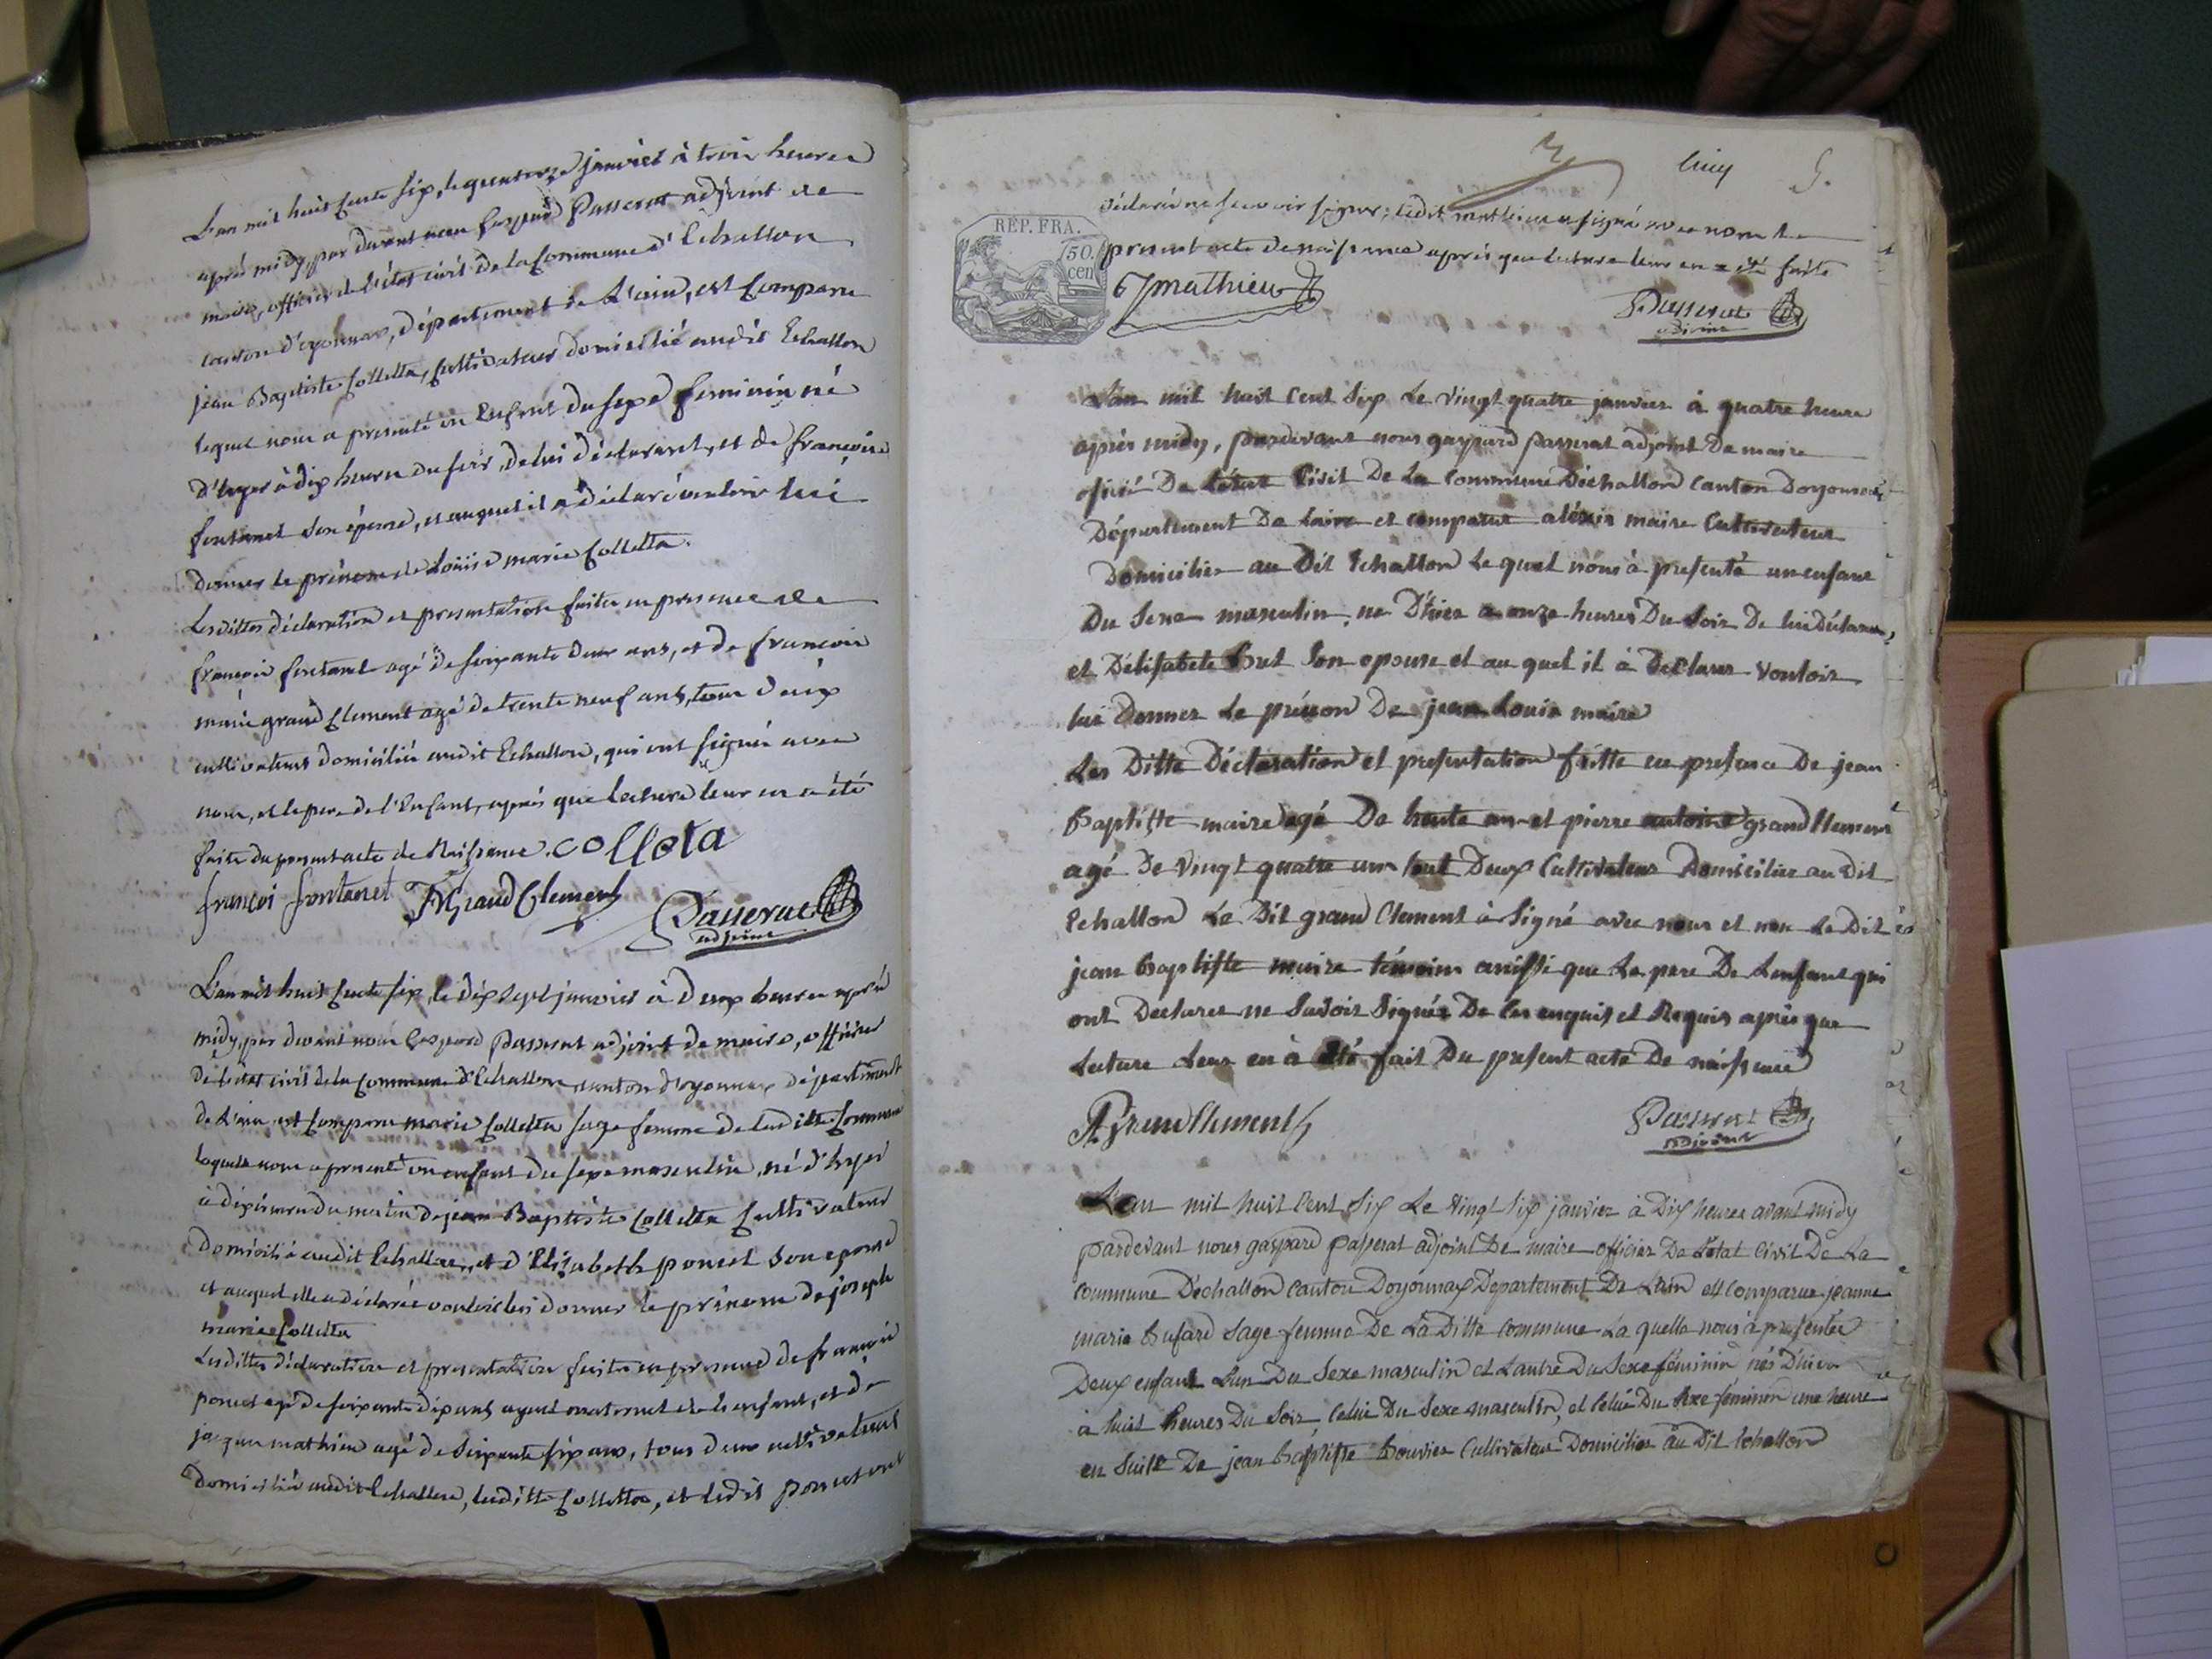 L'an mil huit cents six, le quatorze janvier à trois heures
après midy, par devant nous Gaspard Passerat adjoint de
maire, officier de l'état civil de la Commune d'Echallon
canton d'oyonnax, département de L'ain, est Comparu
jean Baptiste Colletta, cultivateur domicilié audit Echallon
lequel nous a presenté un Enfant du sexe feminin né
d'hyer à dix heures du soir, de lui déclarant, et de françoise
fontanet son épouse, et auquel il a déclaré vouloir lui
donner le prénom de Louise marie Colletta.
Lesdittes déclaration et presentation faites en presence de
françois fontanet agé de soixante deux ans, et de françois
marie grand Clement agé de trente neuf ans, tous deux
cultivateurs domiciliés audit Echallon, qui ont signés avec
nous, et le pere de l'Enfant, après que lecture leur en a été
faite du present acte de Naissance. collota
françoi fontanet fMGrandClement Passerat
adjoint
L'an mil huit cents six, le dix sept janvier à deux heures après
midy, par devant nous Gaspard Passerat adjoint de maire, officier
de l'état civil de la Commune d'Echallon canton d'oyonnax département
de L'ain est Comparu marie Colletta sage femme de laditte Commune
laquelle nous a presenté un enfant du sexe masculin, né d'hyer
à dix heures du matin de jean Baptiste Colletta Cultivateur
domicilié audit Echallon, et d'Elizabeth poncet son epouse
et auquel elle a déclarée vouloir lui donner le prénom de joseph
marie Colletta
Lesdittes déclaration et presentation faites en presence de françois
poncet agé de soixante dix ans ayeul maternel de l'enfant, et de
jacque mathieu agé de soixante six ans, tous deux cultivateurs
domiciliés audit Echallon, laditte Colletta, et ledit poncet ont
cinq 5.
déclaré ne scavoir signer; ledit mathieu a signé avec nous le
present acte de naissance après que lecture leur en a été faite
REP. FRA.
50.
cen
J mathieu Passerat
adjoint
L'an mil huit Cent Six Le vingt quatre janvier à quatre heure
après midy, pardevant nous gaspard passerat adjoint De maire
officié De L'état Civil De La Commune Déchallon Canton Doyonnax,
Département De Lain et comparut aléxis maire Cultivateur
Domicilier au Dit Echallon Le quel nous à presenté un enfant
Du Sexe masculin, ne D'hier a onze heures Du Soir De lui Déclarant,
et Délisabete but Son epouse et au quel il à Declarer vouloir
lui Donner Le prénon De jean Louis maire
Les Ditte Déclaration et presentation faitte en presence De jean
Baptiste maire agé De trente an et pierre antoine grand Clement
agé De vingt quatre ans tout Deux Cultivateur Domicilier au Dit
Echallon Le Dit grand Clement à Signé avec nous et non Le Dit
jean baptiste maire témoins aussi que Le pere De Lenfant qui
ont Declarer ne Savoir Signér De ces enquis et Requis après que
Lecture Leur en à été fait Du present acte De naissance
PAGrandClement Passerat
adjoint
L'an mil huit Cent Six Le vingt Six janvier à Dix heures avant midy
pardevant nous gaspard passerat adjoint De maire officier De L'état Civil De La
Commune Dechallon Canton Doyonnax Departement De Lain est Comparue jeanne
marie busard Sage femme De La Ditte Commune La quelle nous à presentée
Deux enfant L'un Du Sexe masculin et Lautre Du Sexe féminin nés D'hier
à huit heures Du Soir Celui Du Sexe masculin, et Celui Du Sexe féminin une heure
en Suite De jean baptiste bouvier Cultivateur Domicilier au Dit Echallon